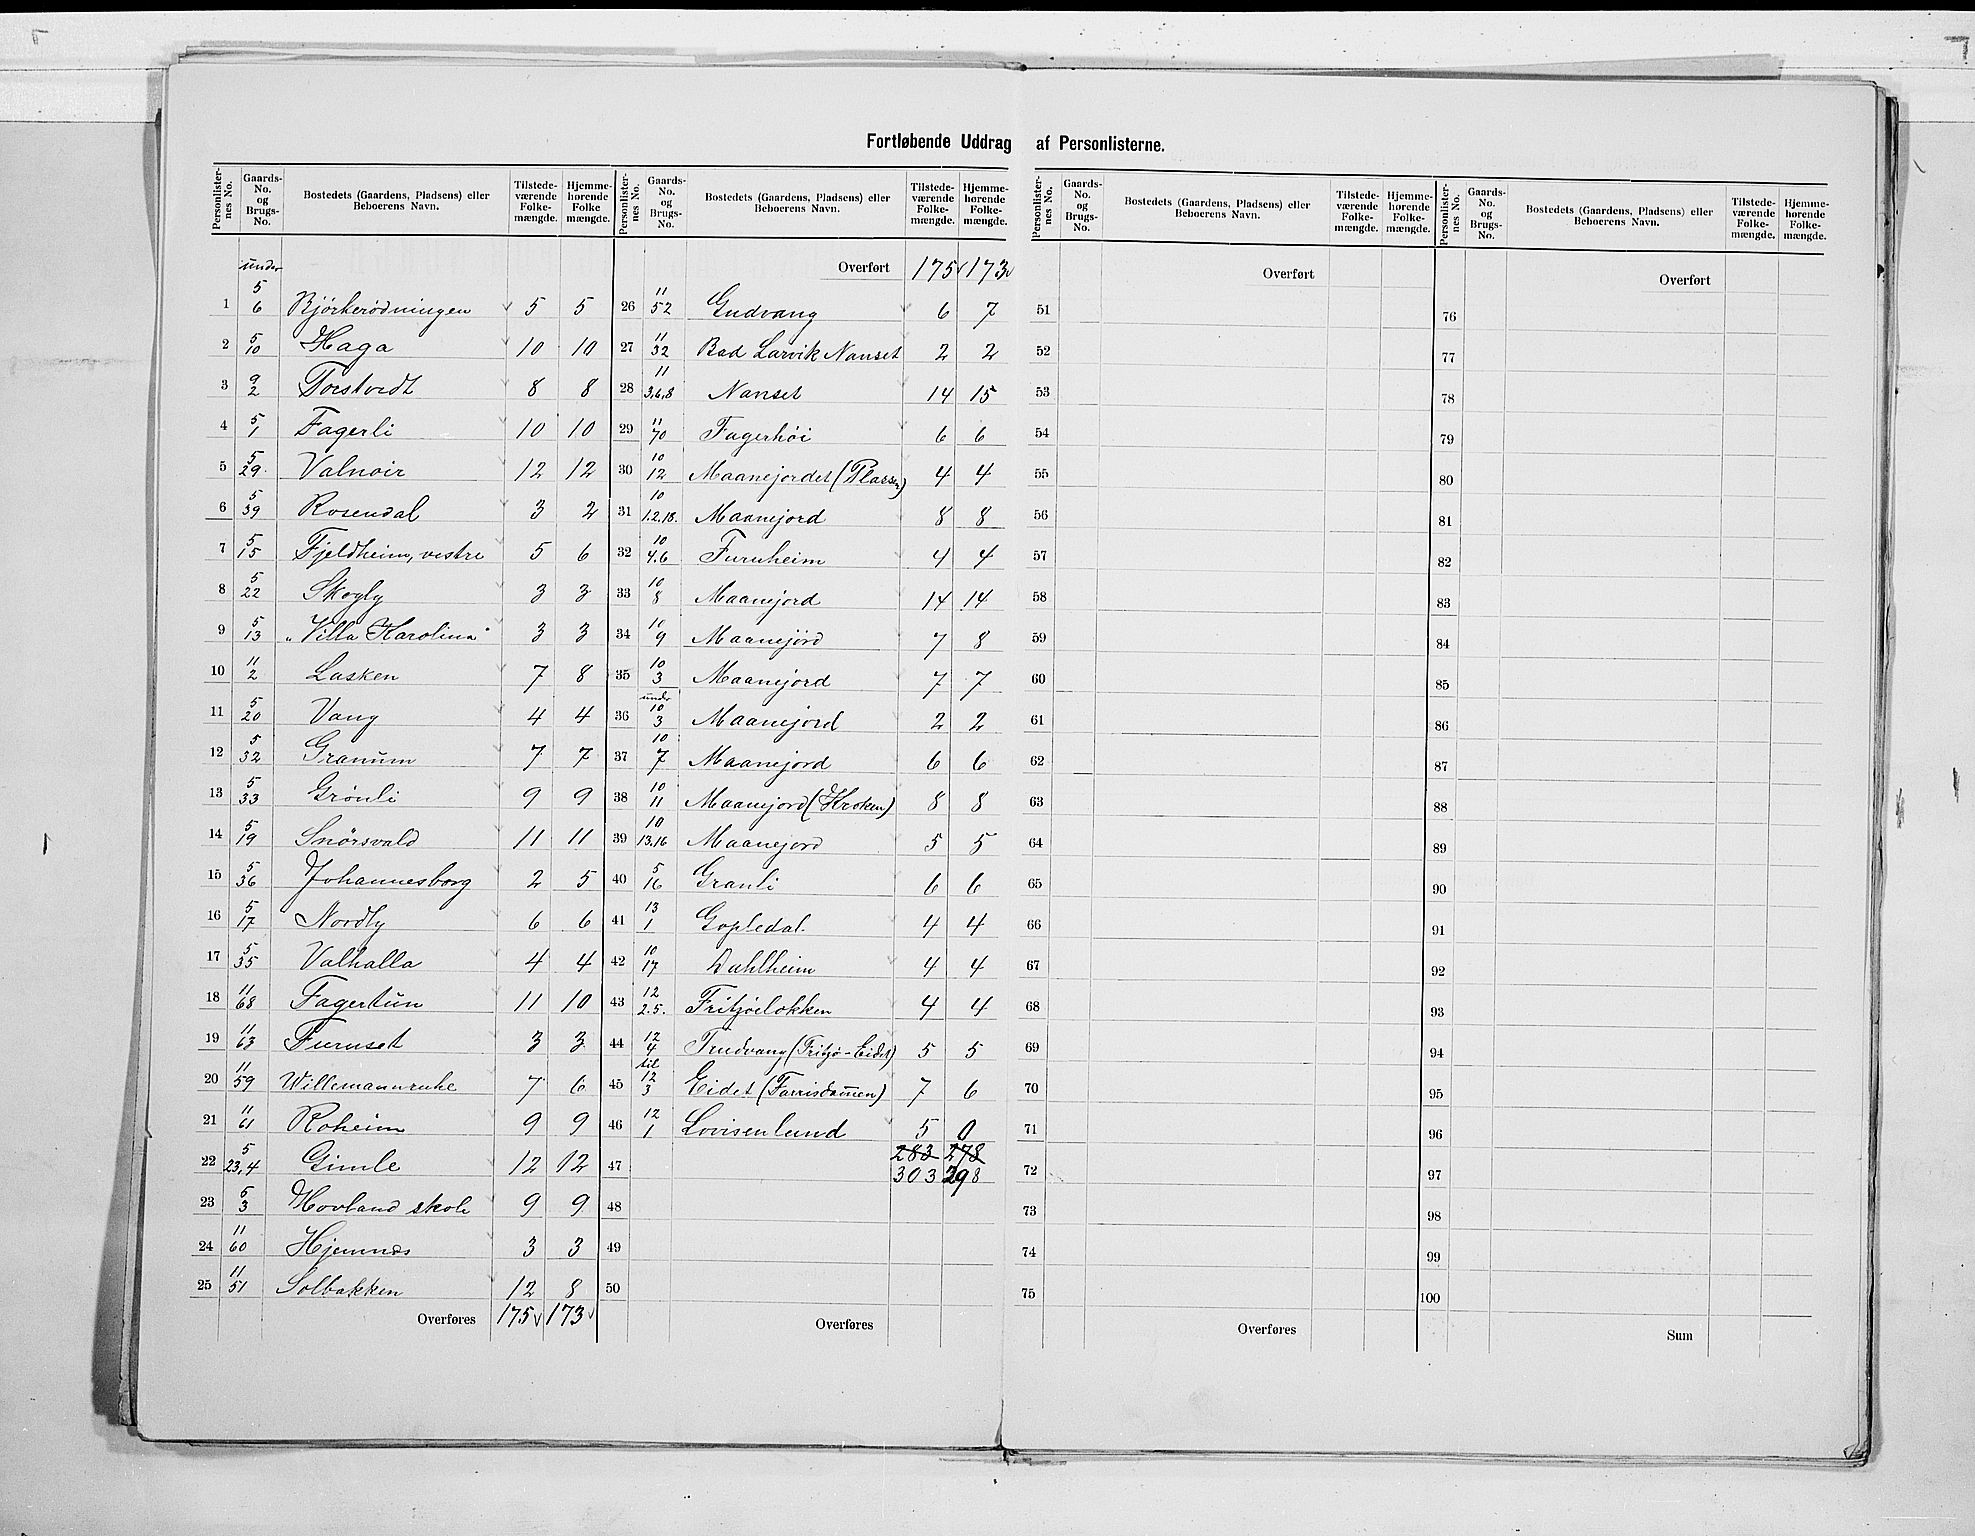 Fortløbende Uddrag af Personlisterne.
Personlister-nes No. | Gaards-No. og Brugs-No. | Bostedets (Gaardens, Pladsens) eller Beboerens Navn. | Tilstede-værende Folke-mængde. | Hjemme-hørende Folke mængde.
1 under 5/6 Bjørkerødningen 5 5
2 5/10 Haga 10 10
3 9/2 Torstvedt 8 8
4 5/1 Fagerli 10 10
5 5/29 Valnoir 12 12
6 5/39 Rosendal 3 2
7 5/15 Fjeldheim, vestre 5 6
8 5/22 Skogly 3 3
9 5/13 „Villa Karolina" 3 3
10 11/2 Lasken 7 8
11 5/20 Vang 4 4
12 5/32 Granum 7 7
13 5/33 Grønli 9 9
14 5/19 Snørsvald 11 11
15 5/36 Johannesborg 2 5
16 5/17 Nordly 6 6
17 5/35 Valhalla 4 4
18 11/68 Fagertun 11 10
19 11/63 Furuset 3 3
20 11/59 Willemannruhe 7 6
21 11/61 Roheim 9 9
22 5/23,4 Gimle 12 12
23 5/3 Hovland skole 9 9
24 11/60 Hjemnæs 3 3
25 11/51 Solbakken 12 8
Overføres 175 173
Personlister-nes No. | Gaards-No. og Brugs-No. | Bostedets (Gaardens, Pladsens) eller Beboerens Navn. | Tilstede-værende Folke-mængde. | Hjemme-hørende Folke-mængde.
Overført 175 173
26 11/52 Gudvang 6 7
27 11/32 Bad Larvik Nanset 2 2
28 11/3,6,8 Nanset 14 15
29 11/70 Fagerhøi 6 6
30 10/12 Maanejordet (Plassen) 4 4
31 10/1.2.18. Maanejord 8 8
32 10/4.6 Furuheim 4 4
33 10/8 Maanejord 14 14
34 10/9 Maanejord 7 8
35 10/3 Maanejord 7 7
36 under 10/3 Maanejord 2 2
37 10/7 Maanejord 6 6
38 10/11 Maanejord (Kroken) 8 8
39 10/13.16 Maanejord 5 5
40 5/16 Granli 6 6
41 13/1 Gopledal. 4 4
42 10/17 Dahlheim 4 4
43 12/2.5. Fritzøeløkken 4 4
44 12/4 Trudvang (Fritzø-Eidet) 5 5
45 til 12/3 Eidet (Farrisdammen) 7 6
46 12/1 Lovisenlund 5 0
283 278
47 303 298
48
49
50
Overføres
Personlister-nes No. | Gaards-No. og Brugs-No. | Bostedets (Gaardens, Pladsens) eller Beboerens Navn. | Tilstede-værende Folke-mængde. | Hjemme-hørende Folke-mængde.
Overført
51
52
53
54
55
56
57
58
59
60
61
62
63
64
65
66
67
68
69
70
71
72
73
74
75
Overføres
Personlister-nes No. | Gaards-No. og Brugs-No. | Bostedets (Gaardens, Pladsens) eller Beboerens Navn. | Tilstede-værende Folke-mængde. | Hjemme-hørende Folke-mængde.
Overført
76
77
78
79
80
81
82
83
84
85
86
87
88
89
90
91
92
93
94
95
96
97
98
99
100
Sum